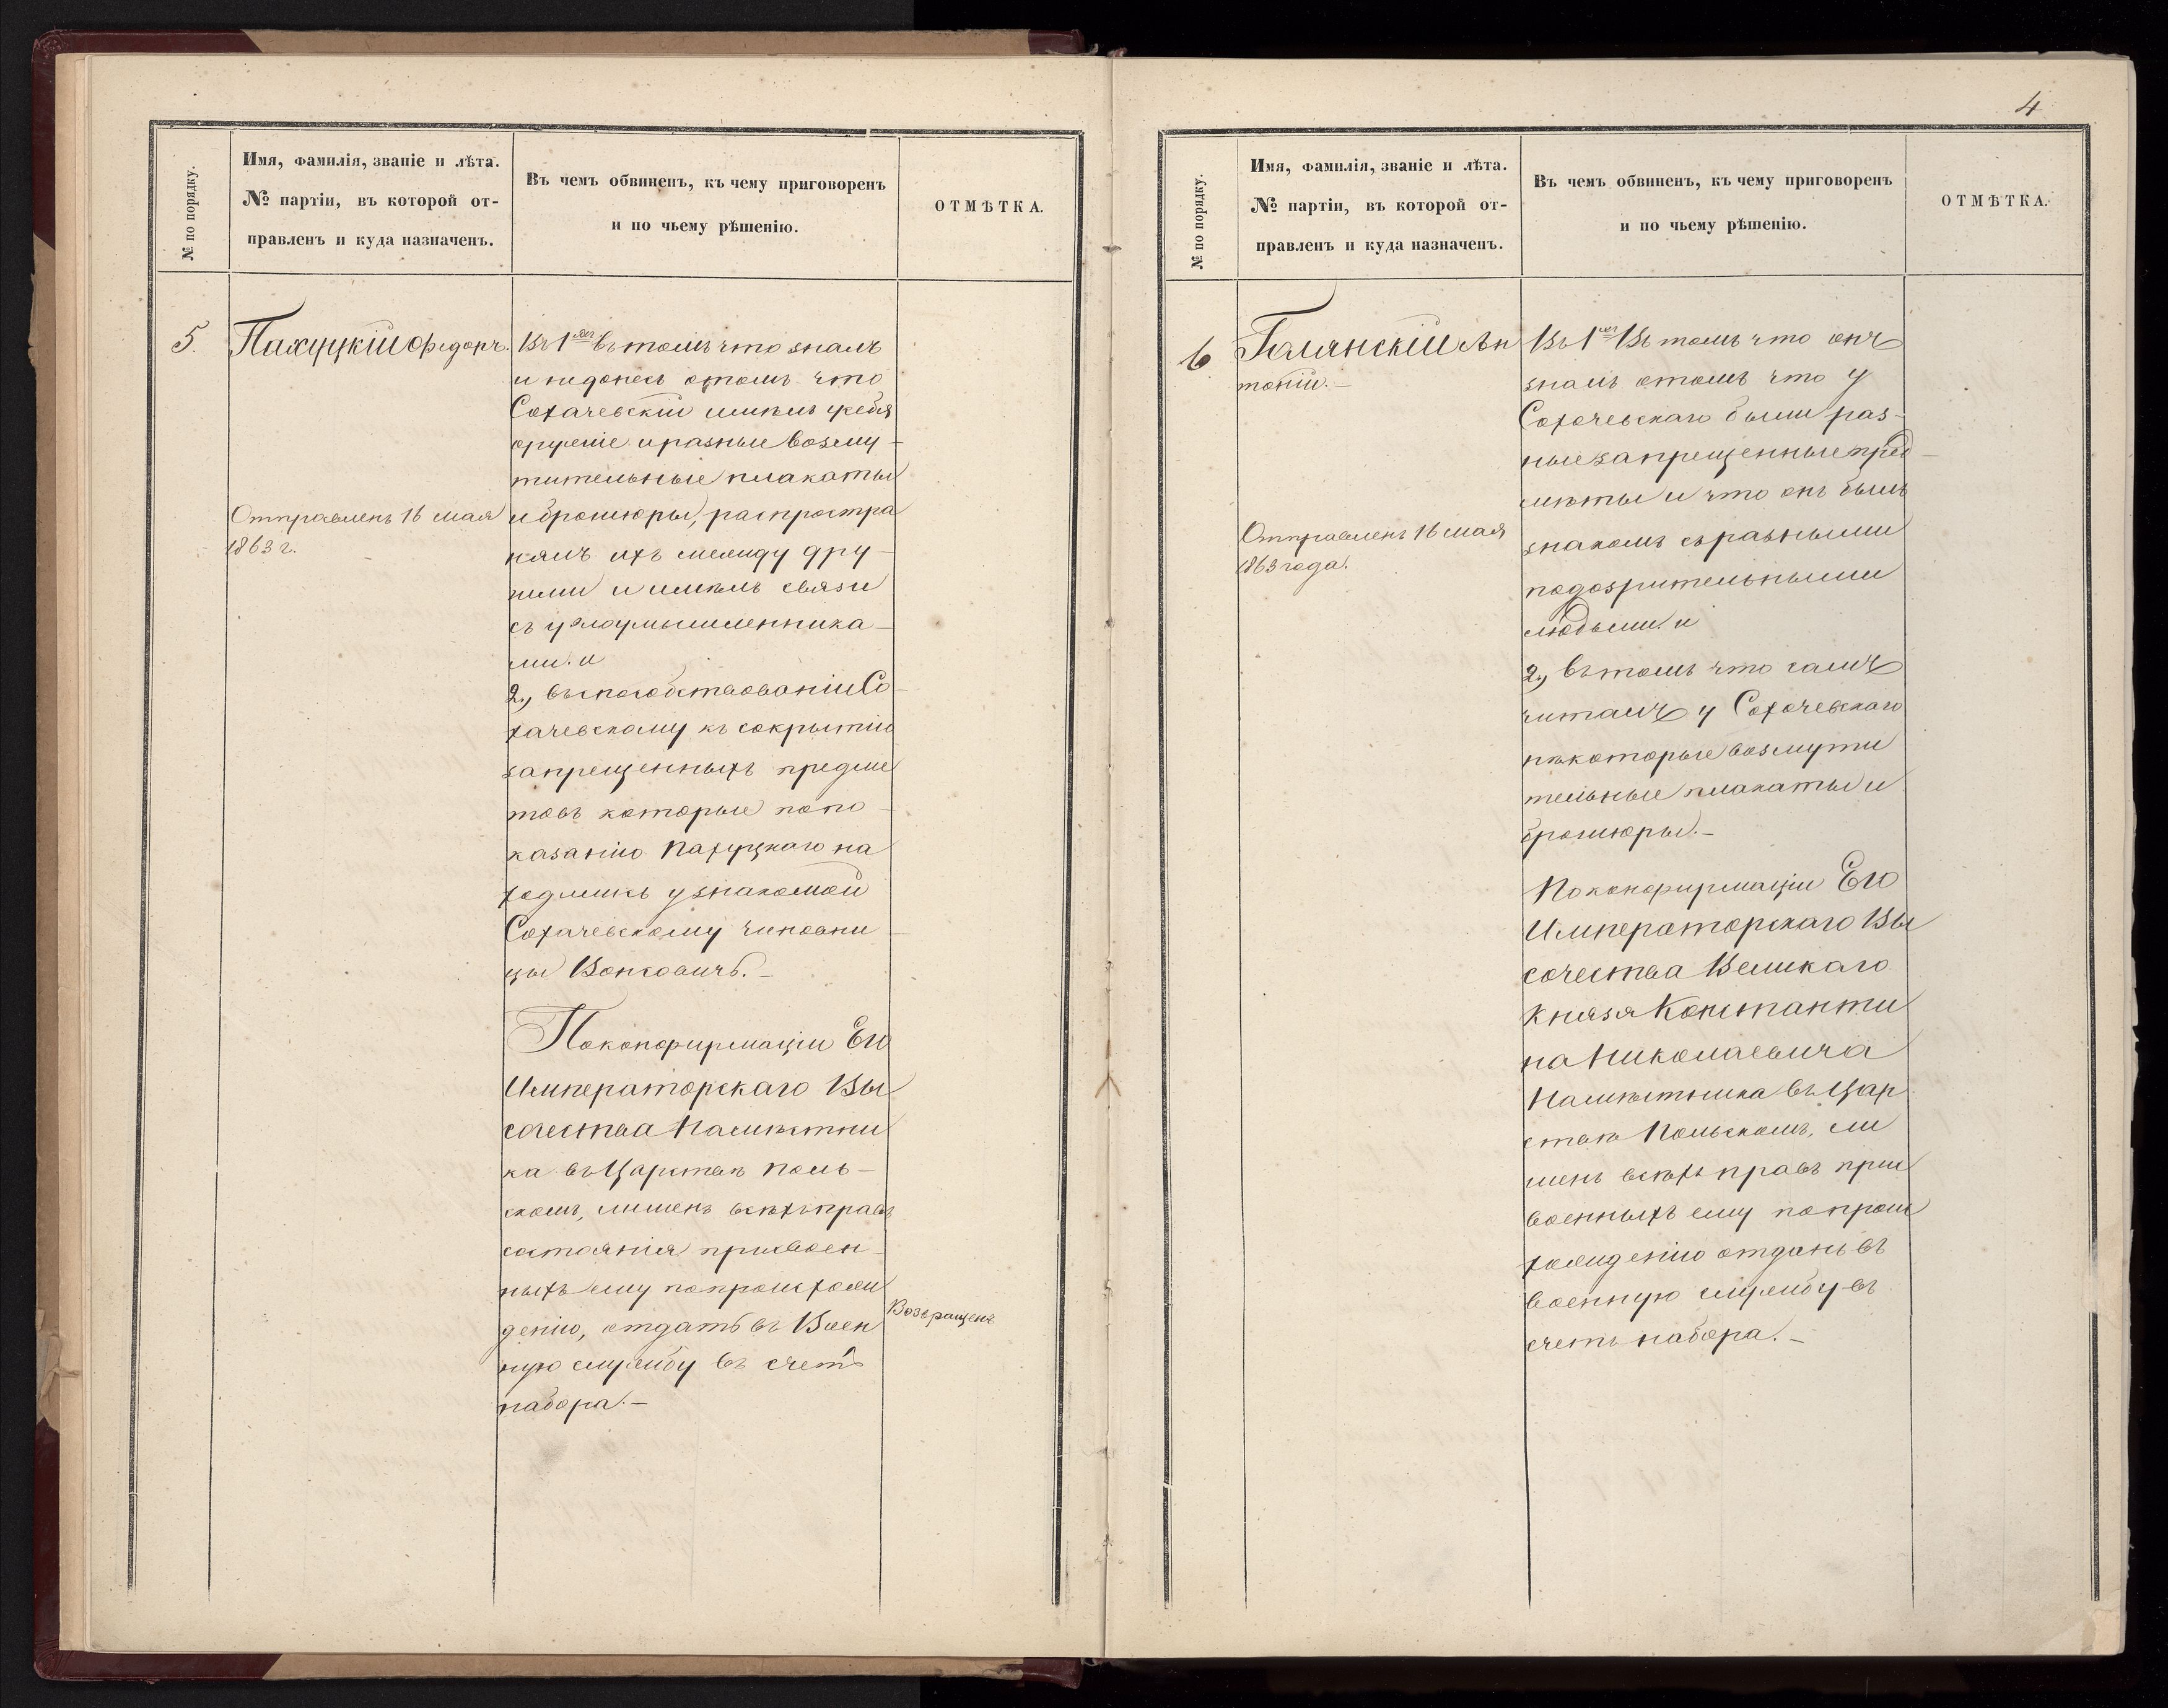 № по порядку.
Имя, фамилія, званіе и лѣта.
№ партіи, въ которой от-
правленъ и куда назначенъ.
Въ чемъ обвиненъ, къ чему приговоренъ
и по чьему рѣшенію.
ОТМѢТКА.
5.
Пахуцкій Федоръ.
Отправленъ 16 мая
1863 г.
Въ 1хъ въ томъ что зналъ
и недонесъ отомъ что
Сохачевскій имѣлъ усебя
оружіе и разные возму-
тительные плакаты
и брошюры, распростра
нялъ ихъ между дру-
гими и имѣлъ связи
съ злоумышленника-
ми. и
2., въспособствованіи Со-
хачевскому къ сокрытію
запрещенныхъ предме
товъ которые попо-
казанію Пахуцкаго на
ходились узнакомой
Сохачевскому чиновни
цы
По конфирмаціи Его
Императорскаго Вы
сочества Намѣстни
ка въ Царствѣ Поль-
скомъ, лишенъ всѣхъ правъ
состоянія присвоен-
ныхъ ему попроисхож
денію, отдать въ Воен
ную службу въ счетъ
набора.—
Возвращенъ
4
№ по порядку.
Имя, фамилія, званіе и лѣта.
№ партіи, въ которой от-
правленъ и куда назначенъ.
Въ чемъ обвиненъ, къ чему приговоренъ
и по чьему рѣшенію.
ОТМѢТКА.
6
Ан
тоній.—
Отправленъ 16 мая
1863 года.
Въ 1хъ Въ томъ что онъ
зналъ отомъ что у
Сохачевскаго были раз-
ные запрещенные пред-
мѣты и что онъ былъ
знакомъ съ разными
подозрительными
людьми. и
2., въ томъ что самъ
читалъ у Сохачевскаго
нѣкоторые возмути
тельные плакаты и
брошюры.—
По конфирмаціи Его
Императорскаго Вы
сочества Великаго
Князя Константи
на Николаевича
Намѣстника въ Цар
ствѣ Польскомъ, ли
шенъ всѣхъ правъ прис
военныхъ ему попроис
хожденію отданъ въ
военную службу въ
счетъ набора.—